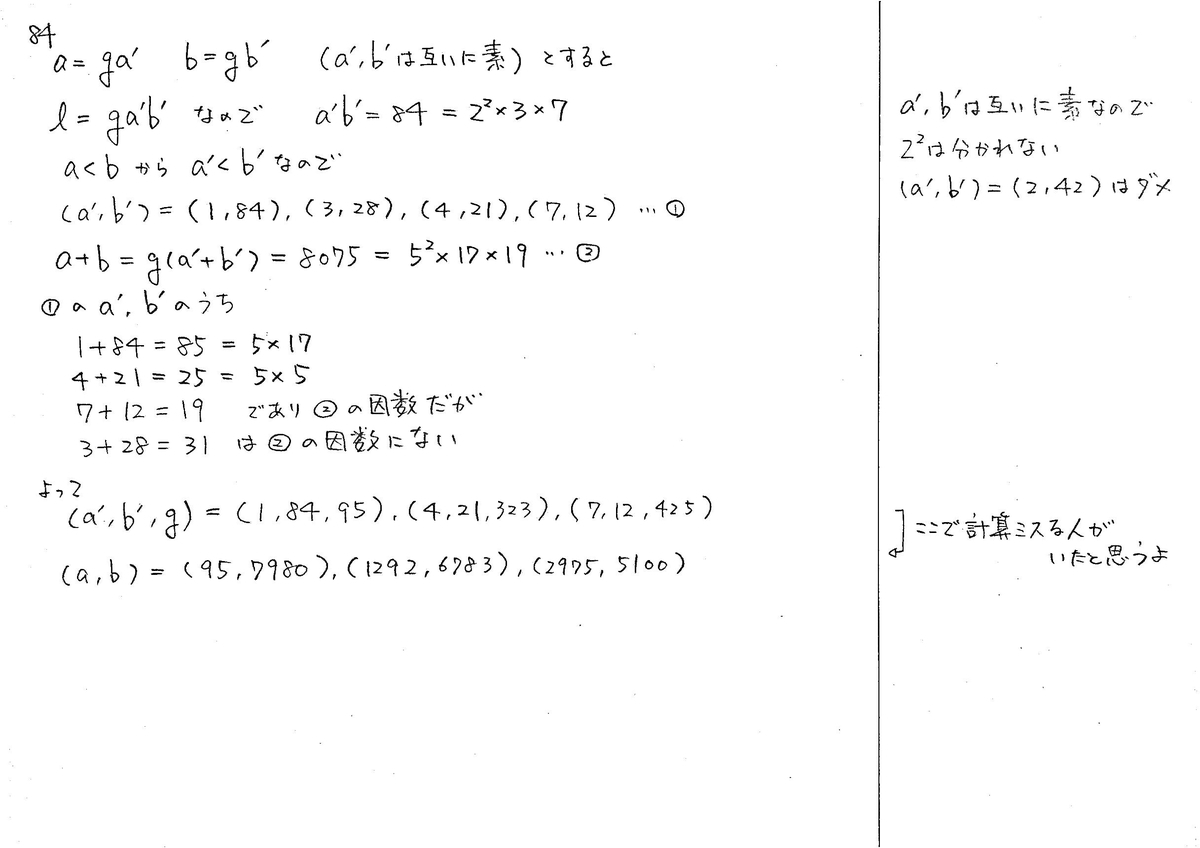 84
a = ga′ b = gb′ (a′, b′は互いに素) とすると
l = ga′b′ なので a′b′ = 84 = 2²×3×7
a<b から a′<b′なので
(a′, b′) = (1, 84), (3, 28), (4, 21), (7, 12) … ①
a+b = g(a′+b′) = 8075 = 5²×17×19 … ②
① の a′, b′のうち
1+84 = 85 = 5×17
4+21 = 25 = 5×5
7+12 = 19 であり ② の因数だが
3+28 = 31 は ② の因数にない
よって
(a′, b′, g) = (1, 84, 95), (4, 21, 323), (7, 12, 425)
(a, b) = (95, 7980), (1292, 6783), (2975, 5100)
a′, b′は互いに素なので
2²は分かれない
(a′, b′) = (2, 42) はダメ
ここで計算ミスる人が
いたと思うよ